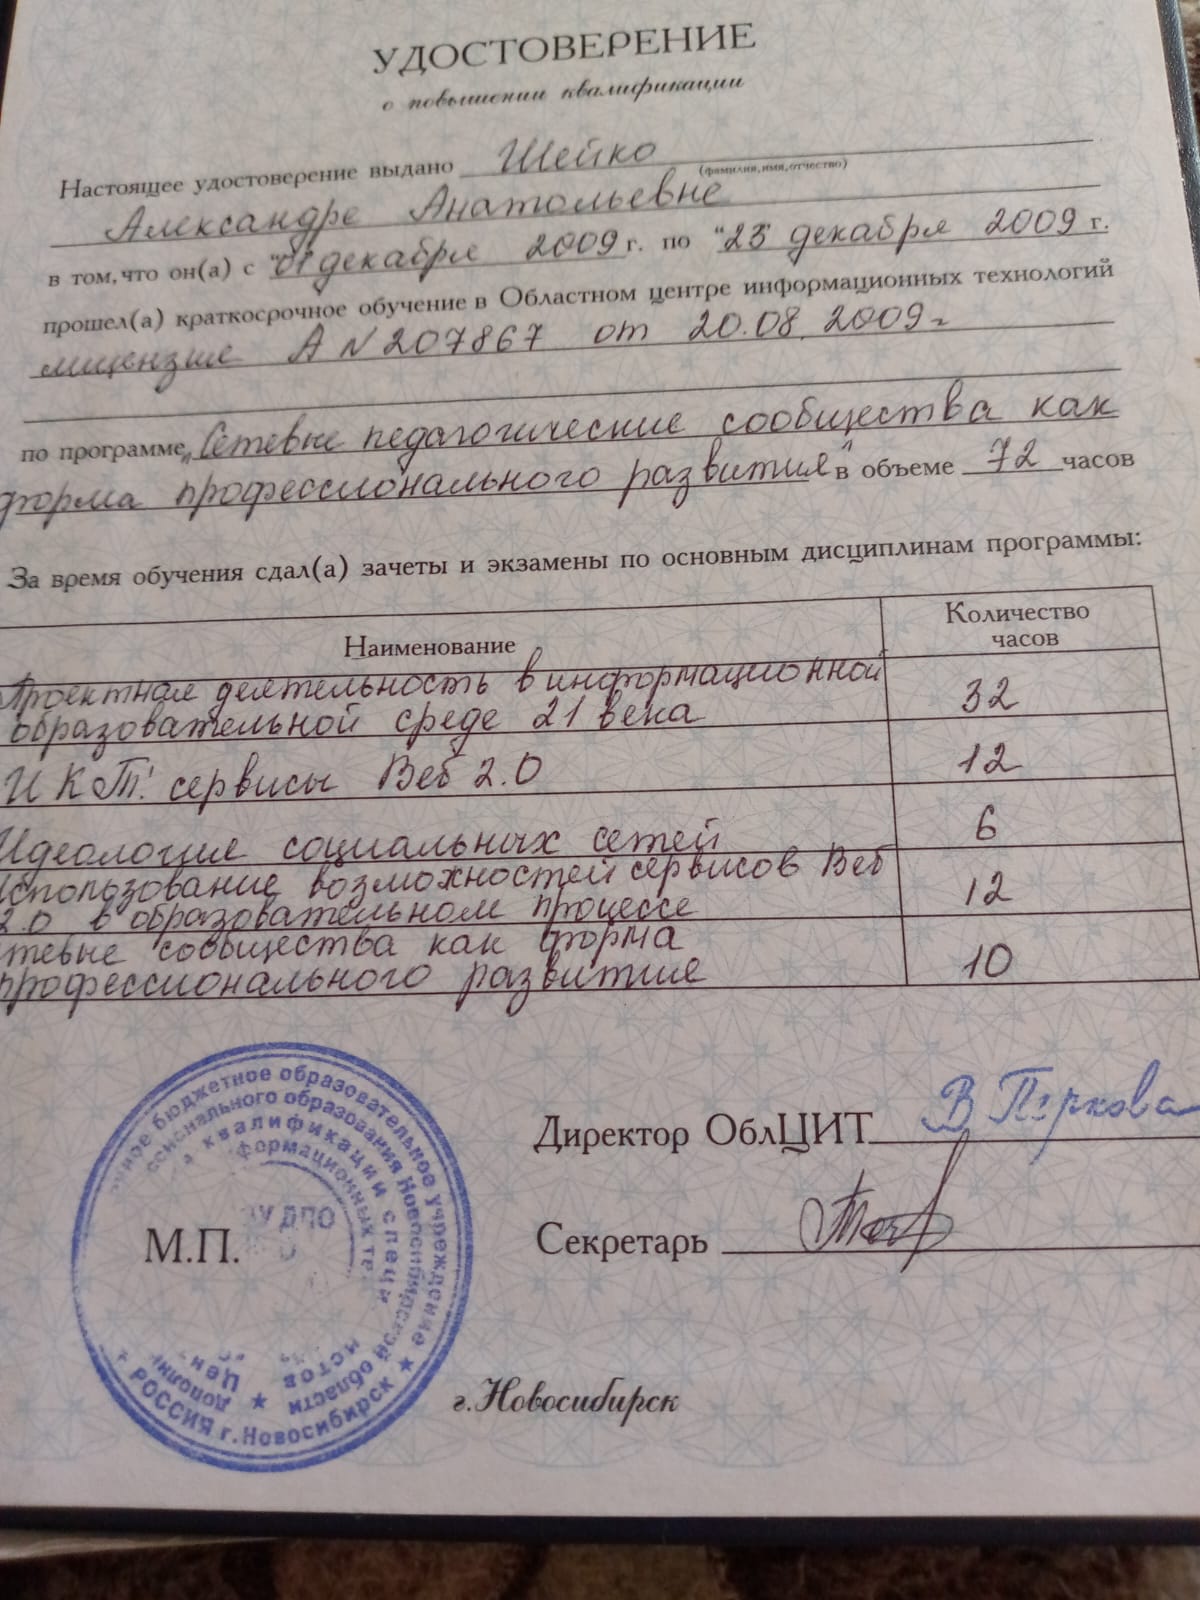 УДОСТОВЕРЕНИЕ
о повышении квалификации
Настоящее удостоверение выдано Шейко
(фамилия, имя, отчество)
Александре Анатольевне
в том, что он(а) с "01 декабря 2009 г. по "25" декабря 2009 г.
прошел(а) краткосрочное обучение в Областном центре информационных технологий
лицензия А № 207867 от 20.08.2009г
по программе „Сетевые педагогические сообщества как
форма профессионального развития" в объеме 72 часов
За время обучения сдал(а) зачеты и экзамены по основным дисциплинам программы:
Наименование Количество часов
Проектная деятельность в информационной
образовательной среде 21 века 32
ИКТ: сервисы Веб 2.0 12
Идеология социальных сетей 6
Использование возможностей сервисов Веб
2.0 в образовательном процессе 12
тевые сообщества как форма
профессионального развития 10
Директор ОблЦИТ В Перкова
М.П.
Секретарь
г. Новосибирск
бюджетное образовательное учреждение
РОССИЯ г. Новосибирск
ссионального образования Новосибирской области
квалификации специ
формационных те
УДПО